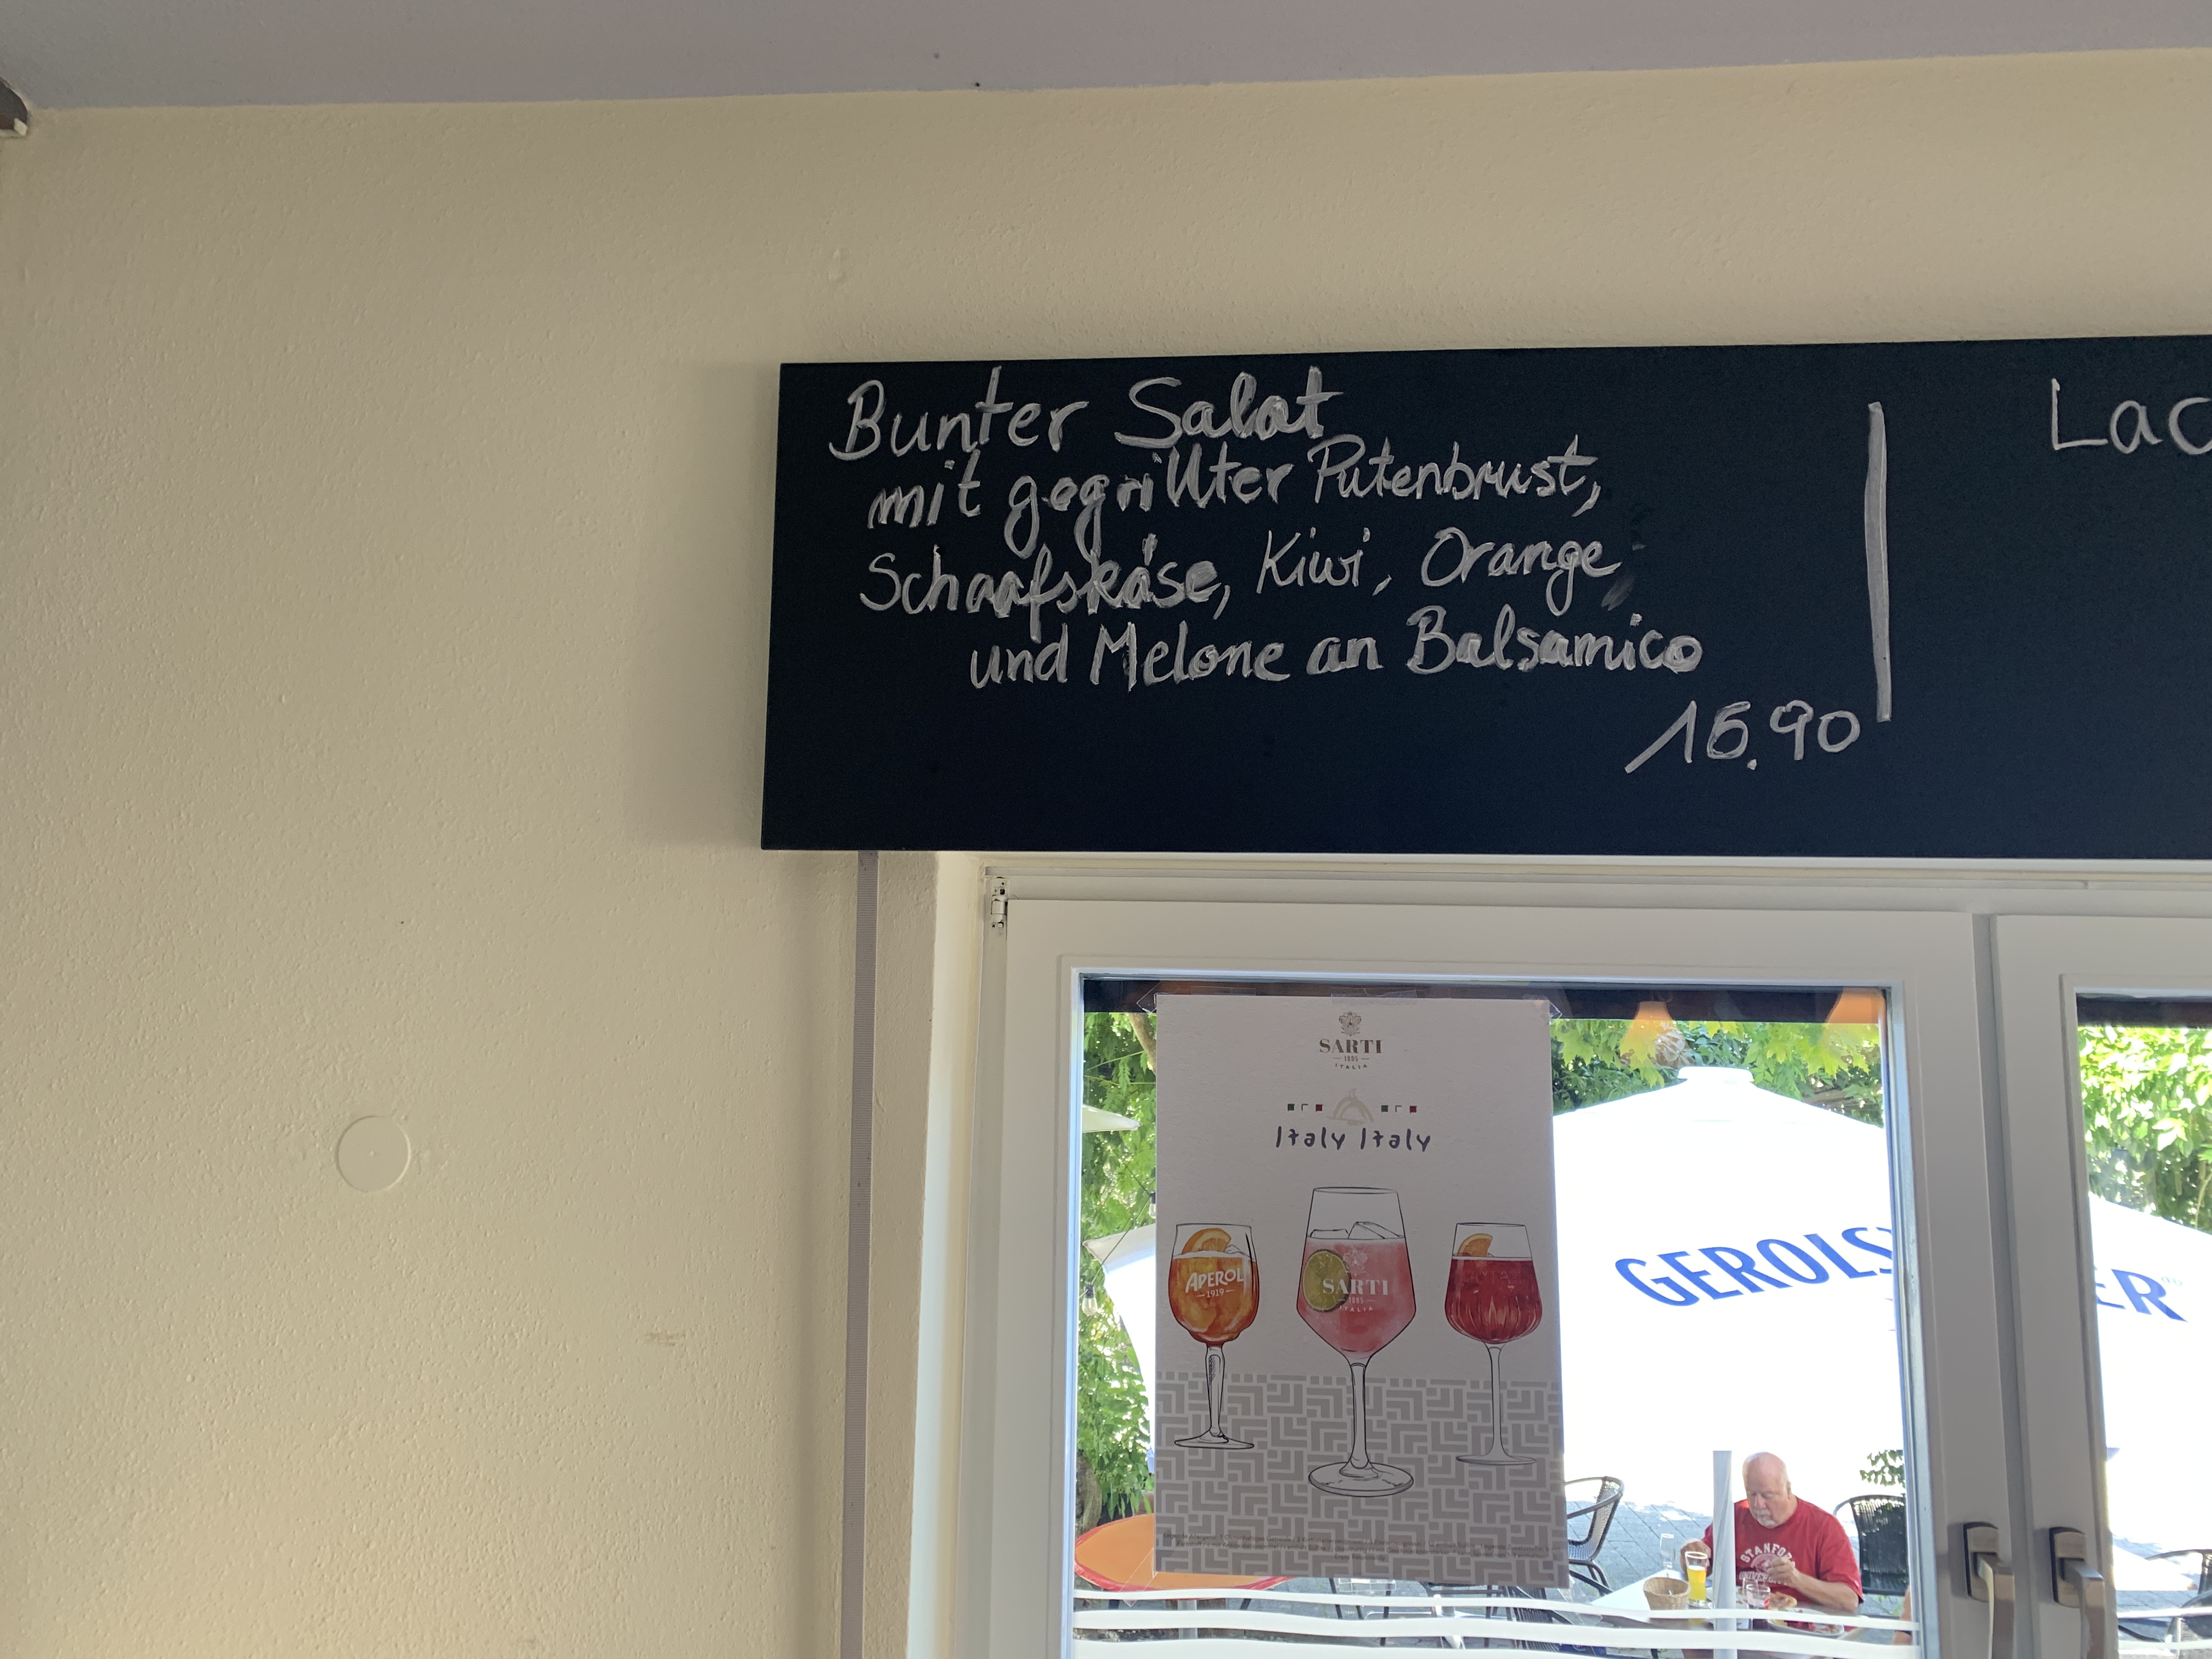 Bunter Salat
mit gegrillter Putenbrust,
Schaafskäse, Kiwi, Orange
und Melone an Balsamico
16.90
Lac
SARTI
1885
ITALIA
Italy Italy
APEROL
1919
SARTI
1885
ITALIA
GEROLS
ER
STANFO